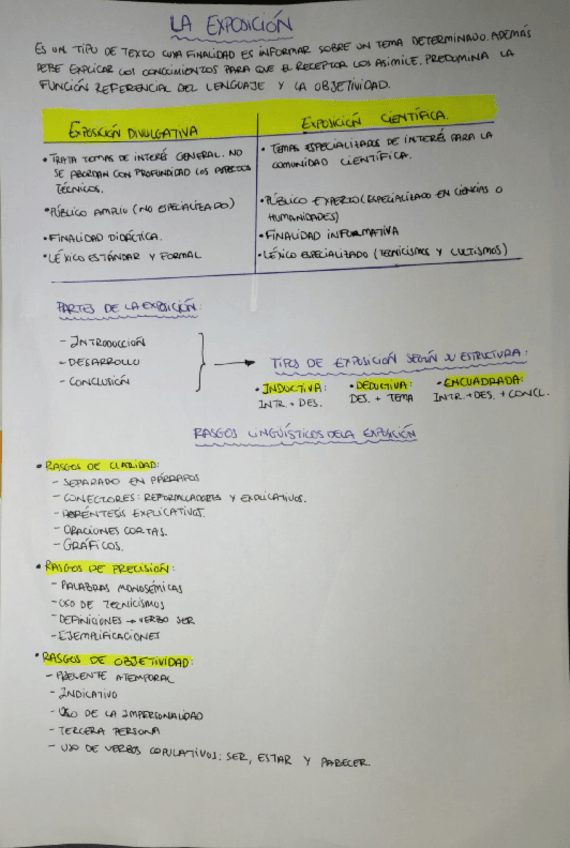 LA EXPOSICIÓN
ES UN TIPO DE TEXTO CUYA FINALIDAD ES INFORMAR SOBRE UN TEMA DETERMINADO. ADEMÁS
DEBE EXPLICAR LOS CONOCIMIENTOS PARA QUE EL RECEPTOR LOS ASIMILE. PREDOMINA LA
FUNCIÓN REFERENCIAL DEL LENGUAJE Y LA OBJETIVIDAD.
EXPOSICIÓN DIVULGATIVA
• TRATA TEMAS DE INTERÉS GENERAL. NO
SE ABORDAN CON PROFUNDIDAD LOS ASPECTOS
TÉCNICOS.
• PÚBLICO AMPLIO (NO ESPECIALIZADO)
• FINALIDAD DIDÁCTICA.
• LÉXICO ESTÁNDAR Y FORMAL
EXPOSICIÓN CIENTÍFICA.
• TEMAS ESPECIALIZADOS DE INTERÉS PARA LA
COMUNIDAD CIENTÍFICA.
• PÚBLICO EXPERTO (ESPECIALIZADO EN CIENCIAS O
HUMANIDADES)
• FINALIDAD INFORMATIVA
• LÉXICO ESPECIALIZADO (TECNICISMOS Y CULTISMOS)
PARTES DE LA EXPOSICIÓN:
- INTRODUCCIÓN
- DESARROLLO
- CONCLUSIÓN
TIPOS DE EXPOSICIÓN SEGÚN SU ESTRUCTURA:
• INDUCTIVA: • DEDUCTIVA: • ENCUADRADA:
INTR + DES. DES. + TEMA INTR. + DES. + CONCL.
RASGOS LINGÜÍSTICOS DE LA EXPOSICIÓN
• RASGOS DE CLARIDAD:
- SEPARADO EN PÁRRAFOS
- CONECTORES: REFORMULADORES Y EXPLICATIVOS.
- PARÉNTESIS EXPLICATIVOS.
- ORACIONES CORTAS.
- GRÁFICOS.
• RASGOS DE PRECISIÓN:
- PALABRAS MONOSÉMICAS
- USO DE TECNICISMOS
- DEFINICIONES → VERBO SER
- EJEMPLIFICACIONES
• RASGOS DE OBJETIVIDAD:
- PRESENTE ATEMPORAL
- INDICATIVO
- USO DE LA IMPERSONALIDAD
- TERCERA PERSONA
- USO DE VERBOS COPULATIVOS: SER, ESTAR Y PARECER.